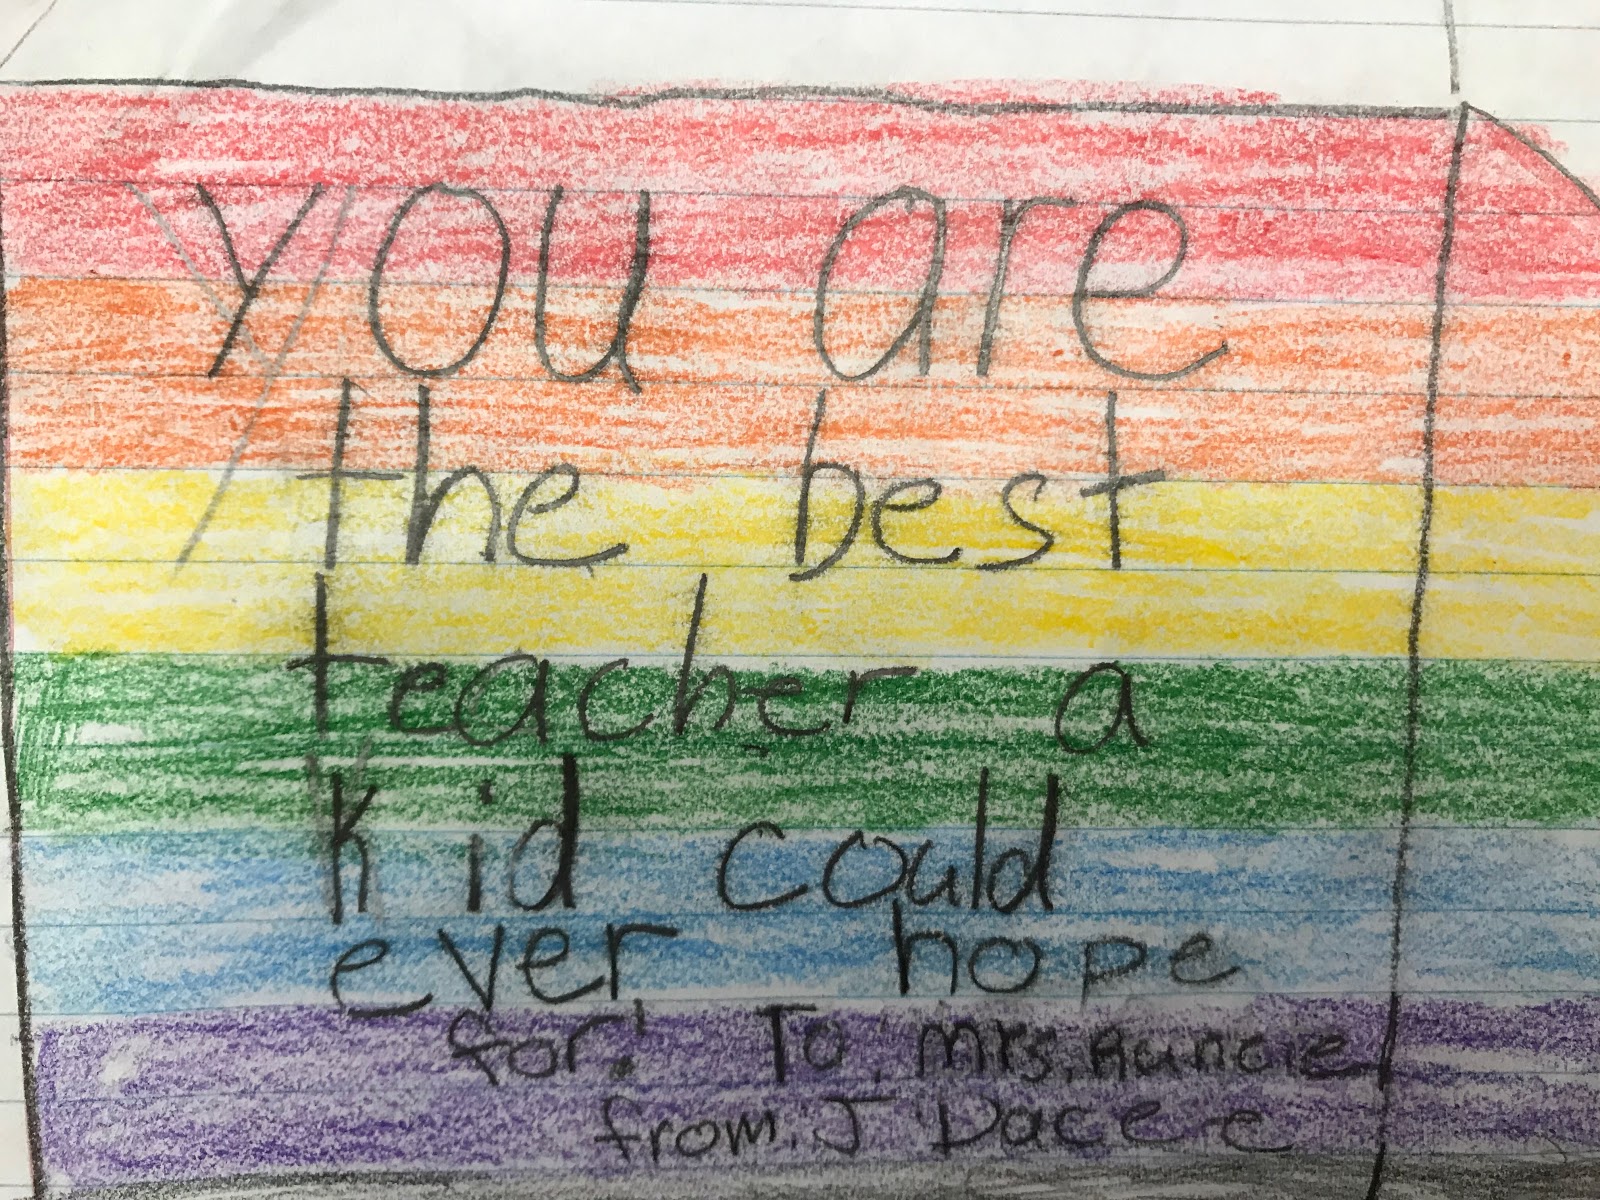 you are
the best
teacher a
kid could
ever hope
for! To, Mrs.
from. J